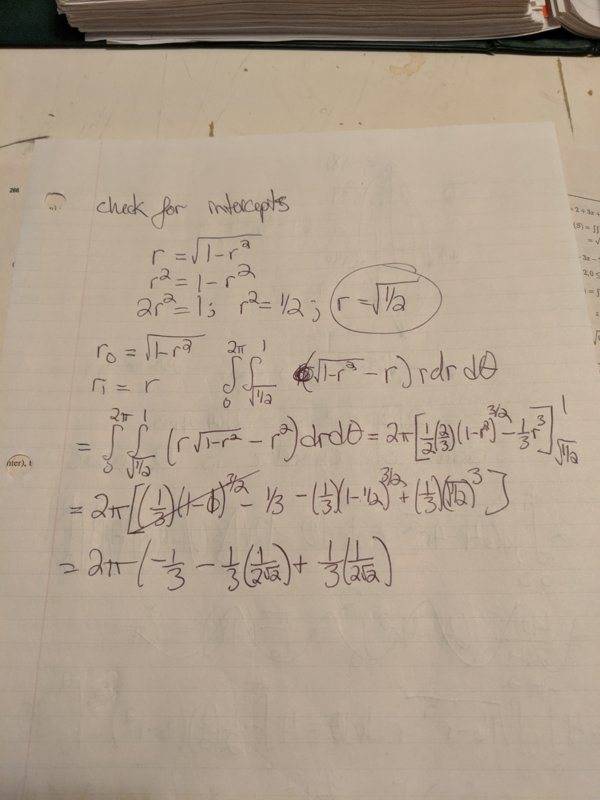 266
check for intercepts
r = √1-r²
r² = 1-r²
2r² = 1; r² = 1/2; r = √1/2
r₀ = √1-r² ∫₀^2π ∫_√1/2^1 (√1-r² - r) r dr dθ
r₁ = r
= ∫₀^2π ∫_√1/2^1 (r√1-r² - r²) dr dθ = 2π[1/2(2/3)(1-r²)^3/2 - 1/3 r³]_√1/2^1
= 2π[(1/3)(1-1)^3/2 - 1/3 - (1/3)(1-1/2)^3/2 + (1/3)(√1/2)³]
= 2π(-1/3 - 1/3(1/2√2) + 1/3(1/2√2)
nter), t